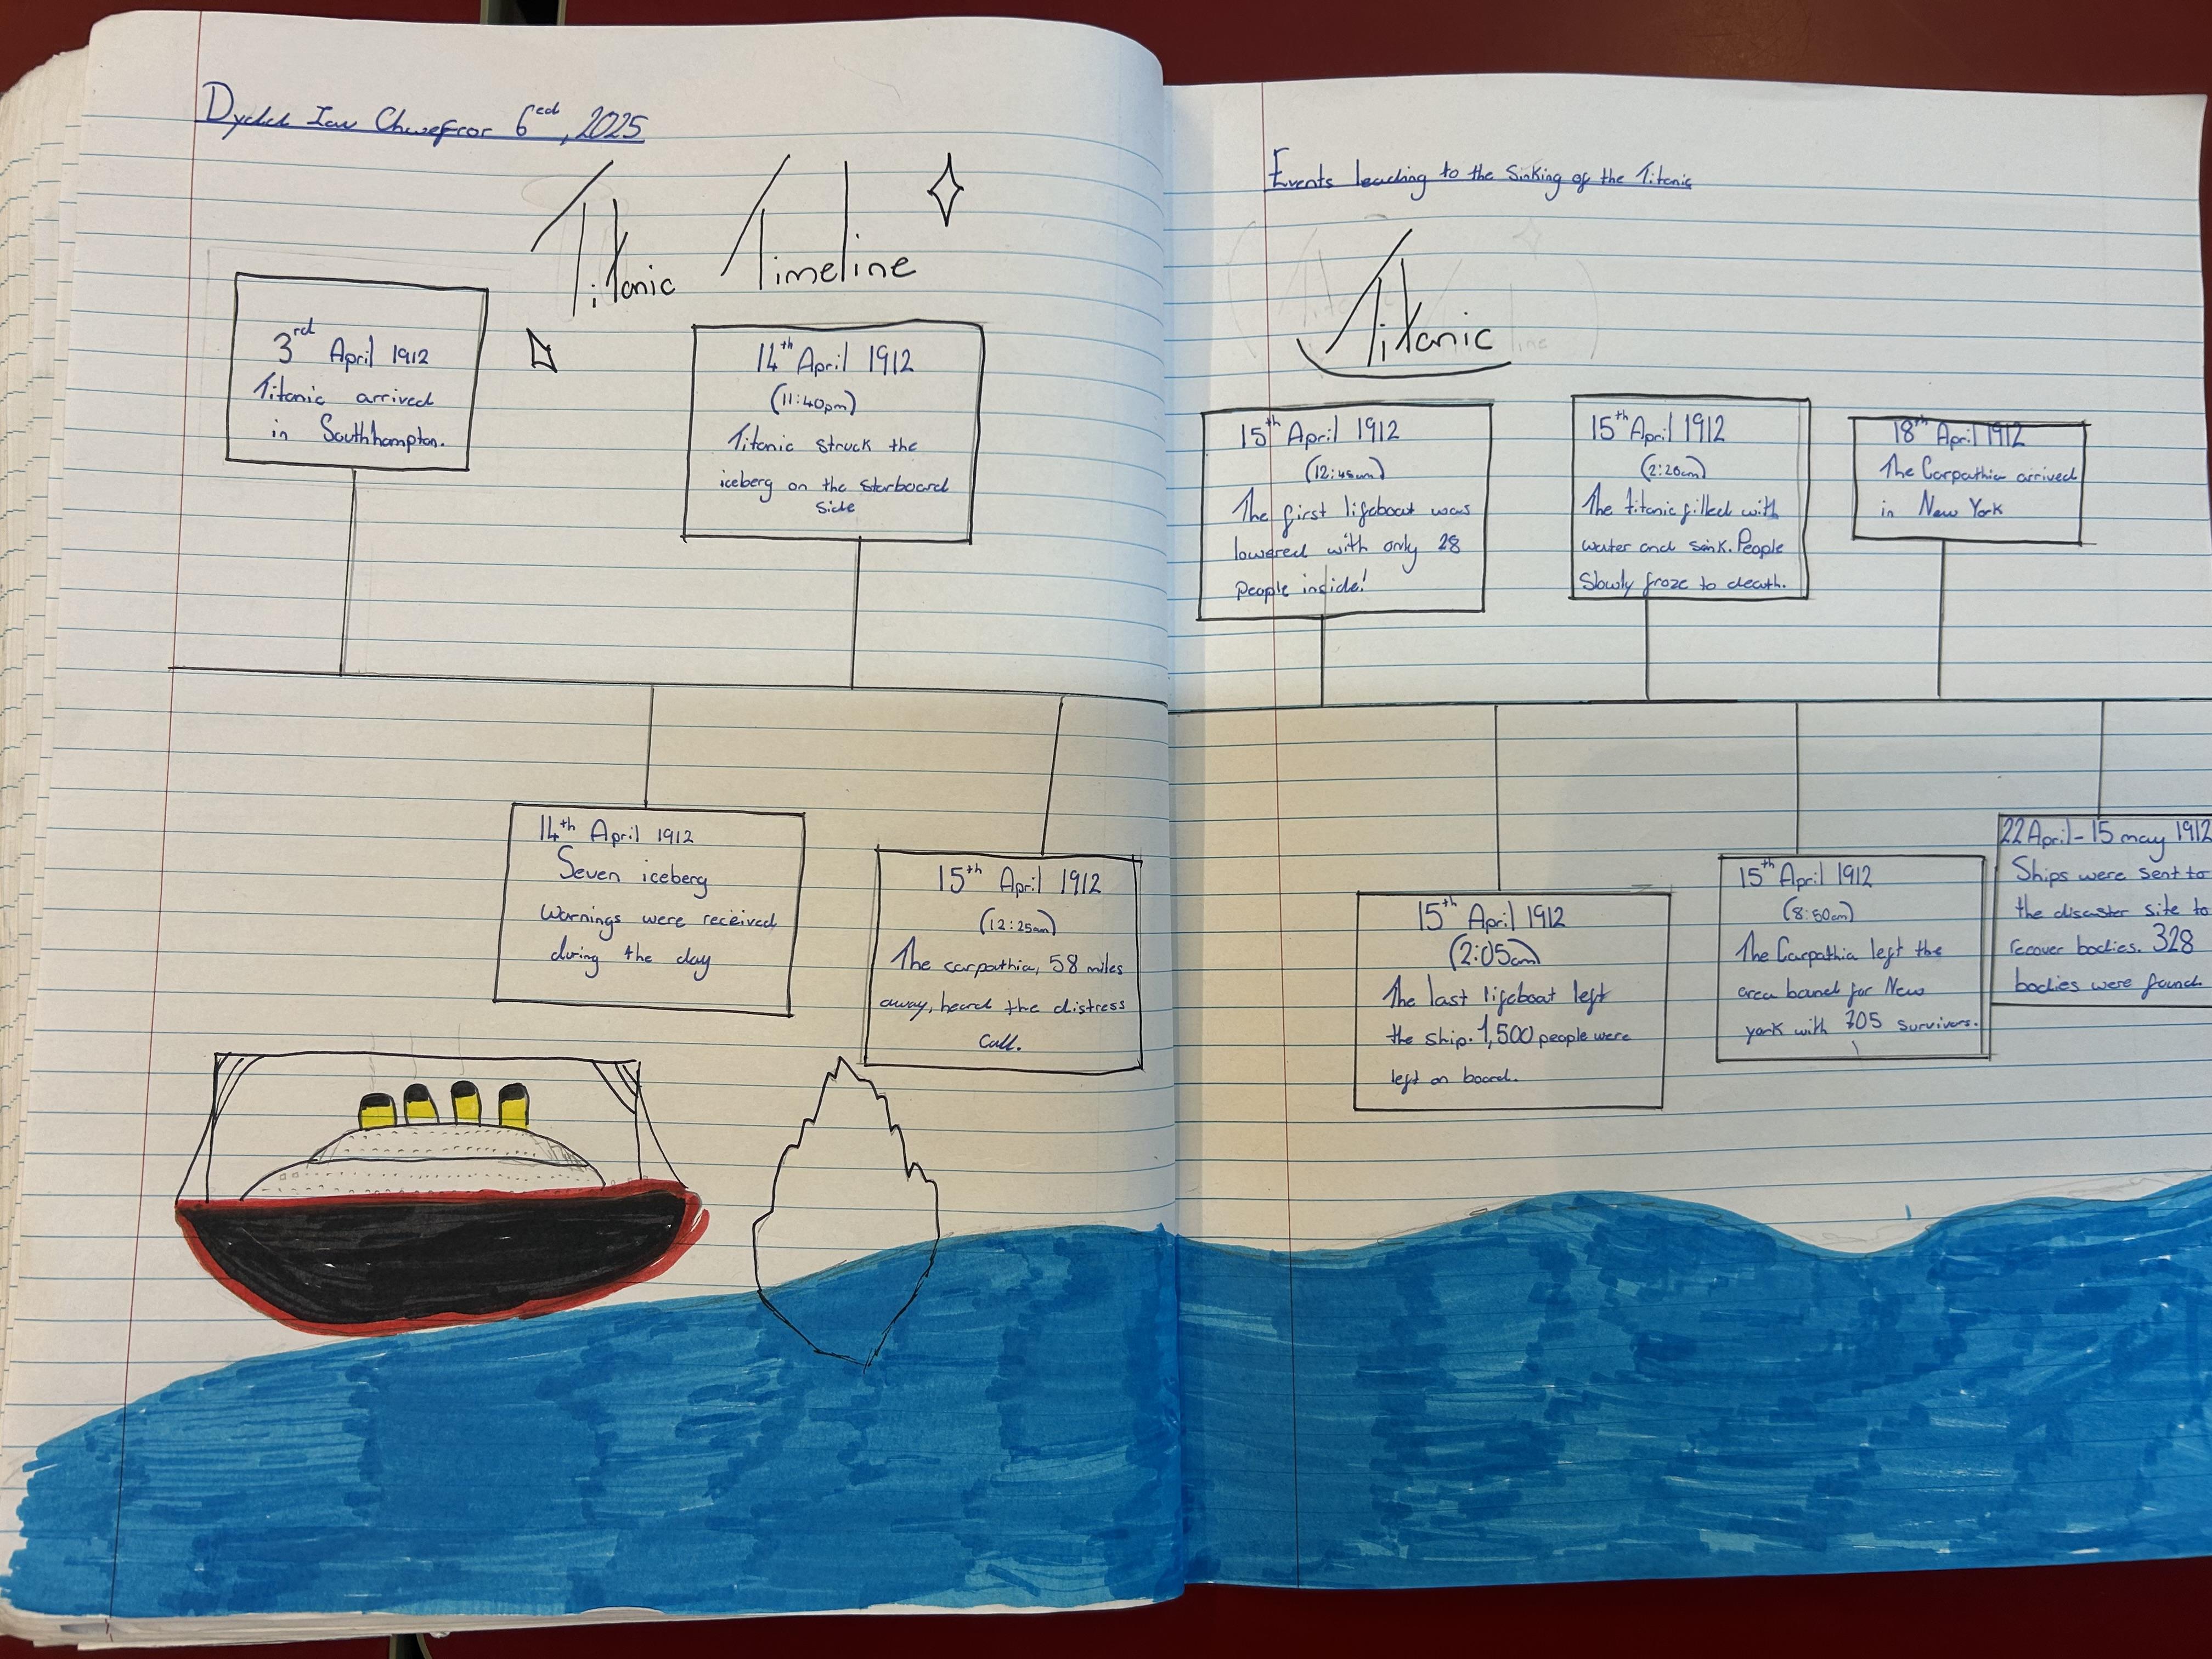 Dydd Iau Chwefror 6ed, 2025
Titanic Timeline
3rd April 1912
Titanic arrived
in Southhampton.
14th April 1912
Seven iceberg
warnings were received
during the day
14th April 1912
(11:40pm)
Titanic struck the
iceberg on the starboard
side
15th April 1912
(12:25am)
The carpathia, 58 miles
away, heard the distress
Call.
Events leading to the Sinking of the Titanic
Titanic
15th April 1912
(12:45am)
The first lifeboat was
lowered with only 28
people inside!
15th April 1912
(2:05am)
The last lifeboat left
the ship. 1,500 people were
left on board.
15th April 1912
(2:20am)
The titanic filled with
water and sink. People
Slowly froze to death.
15th April 1912
(8:50am)
The Carpathia left the
area bound for New
york with 705 survivors.
18th April 1912
The Carpathia arrived
in New York
22 April - 15 may 1912
Ships were sent to
the disaster site to
recover bodies. 328
bodies were found